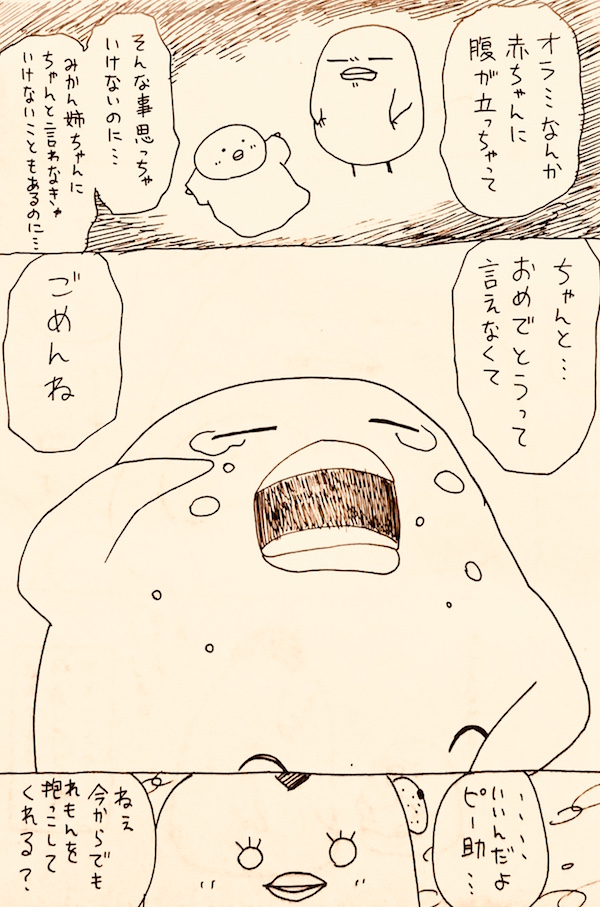 オラミなんか
赤ちゃんに
腹が立っちゃって
そんな事思っちゃ
いけないのに…
みかん姉ちゃんに
ちゃんと言わなきゃ
いけないこともあるのに…
ちゃんと…
おめでとうって
言えなくて
ごめんね
、、、、
いいんだよ
ピー助…
ねぇ
今からでも
れもんを
抱っこして
くれる？